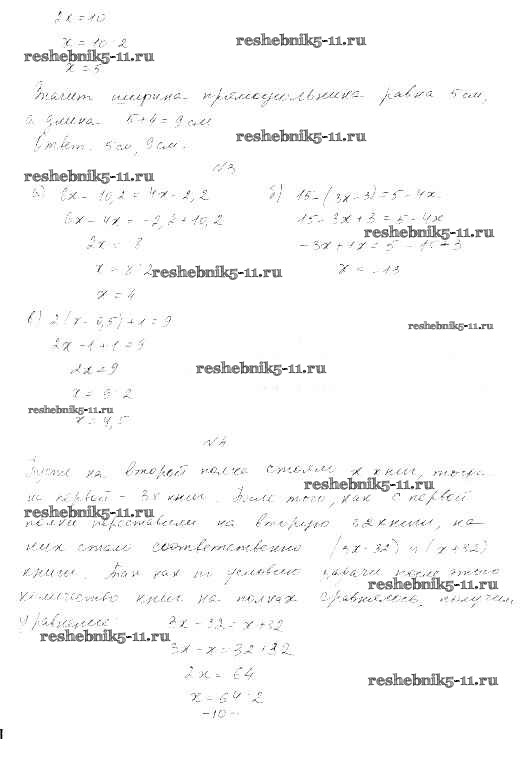 2x = 10
x = 10 : 2
reshebnik5-11.ru
reshebnik5-11.ru
x = 5
Значит ширина прямоугольника равна 5 см,
а длина 5+4=9 см
reshebnik5-11.ru
Ответ. 5 см, 9 см.
№3
reshebnik5-11.ru
а) 6x - 10,2 = 4x - 2,2
6x - 4x = -2,2 + 10,2
2x = 8
x = 8 : 2
reshebnik5-11.ru
x = 4
б) 15 - (3x - 3) = 5 - 4x
15 - 3x + 3 = 5 - 4x
reshebnik5-11.ru
-3x + 4x = 5 - 15 + 3
x = -13
reshebnik5-11.ru
в) 2(x - 0,5) + 1 = 9
2x - 1 + 1 = 9
reshebnik5-11.ru
2x = 9
x = 9 : 2
reshebnik5-11.ru
x = 4,5
№4
Пусть на второй полке стояли x книг, тогда
на первой - 3x книг. После того, как с первой
reshebnik5-11.ru
reshebnik5-11.ru
полки переставили на вторую 32 книги, на
них стало соответственно (3x-32) и (x+32)
книги. Так как по условию задачи после этого
reshebnik5-11.ru
количество книг на полках сравнялось, получим
уравнение: 3x - 32 = x + 32
reshebnik5-11.ru
3x - x = 32 + 32
2x = 64
reshebnik5-11.ru
x = 64 : 2
-10-